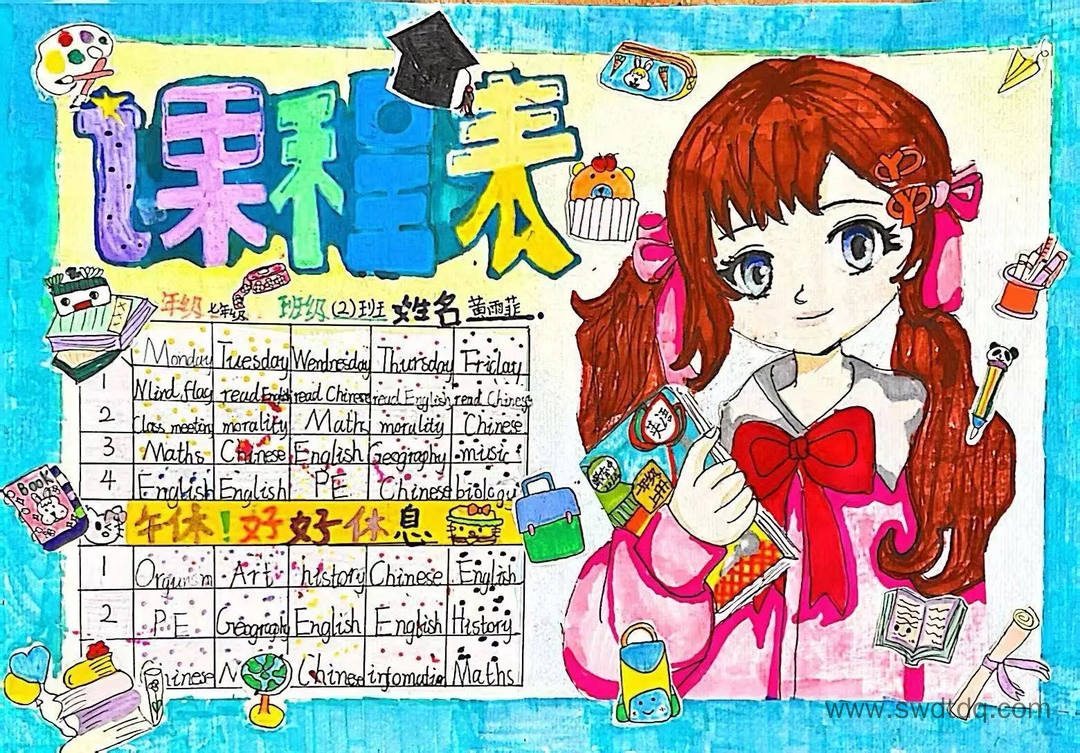 课程表
年级 七年级 班级 (2)班 姓名 黄雨菲.
Monday Tuesday Wendnesday Thursday Friday
1 read English read Chinese read English read Chinese
2 Class meeting morality Math morality Chinese
3 Maths Chinese English Geography music
4 English English PE Chinese biology
午休!好好休息
1 Art history Chinese English
2 PE Geography English English History
Chinese infomatin Maths
BOOK
www.swdtdq.com